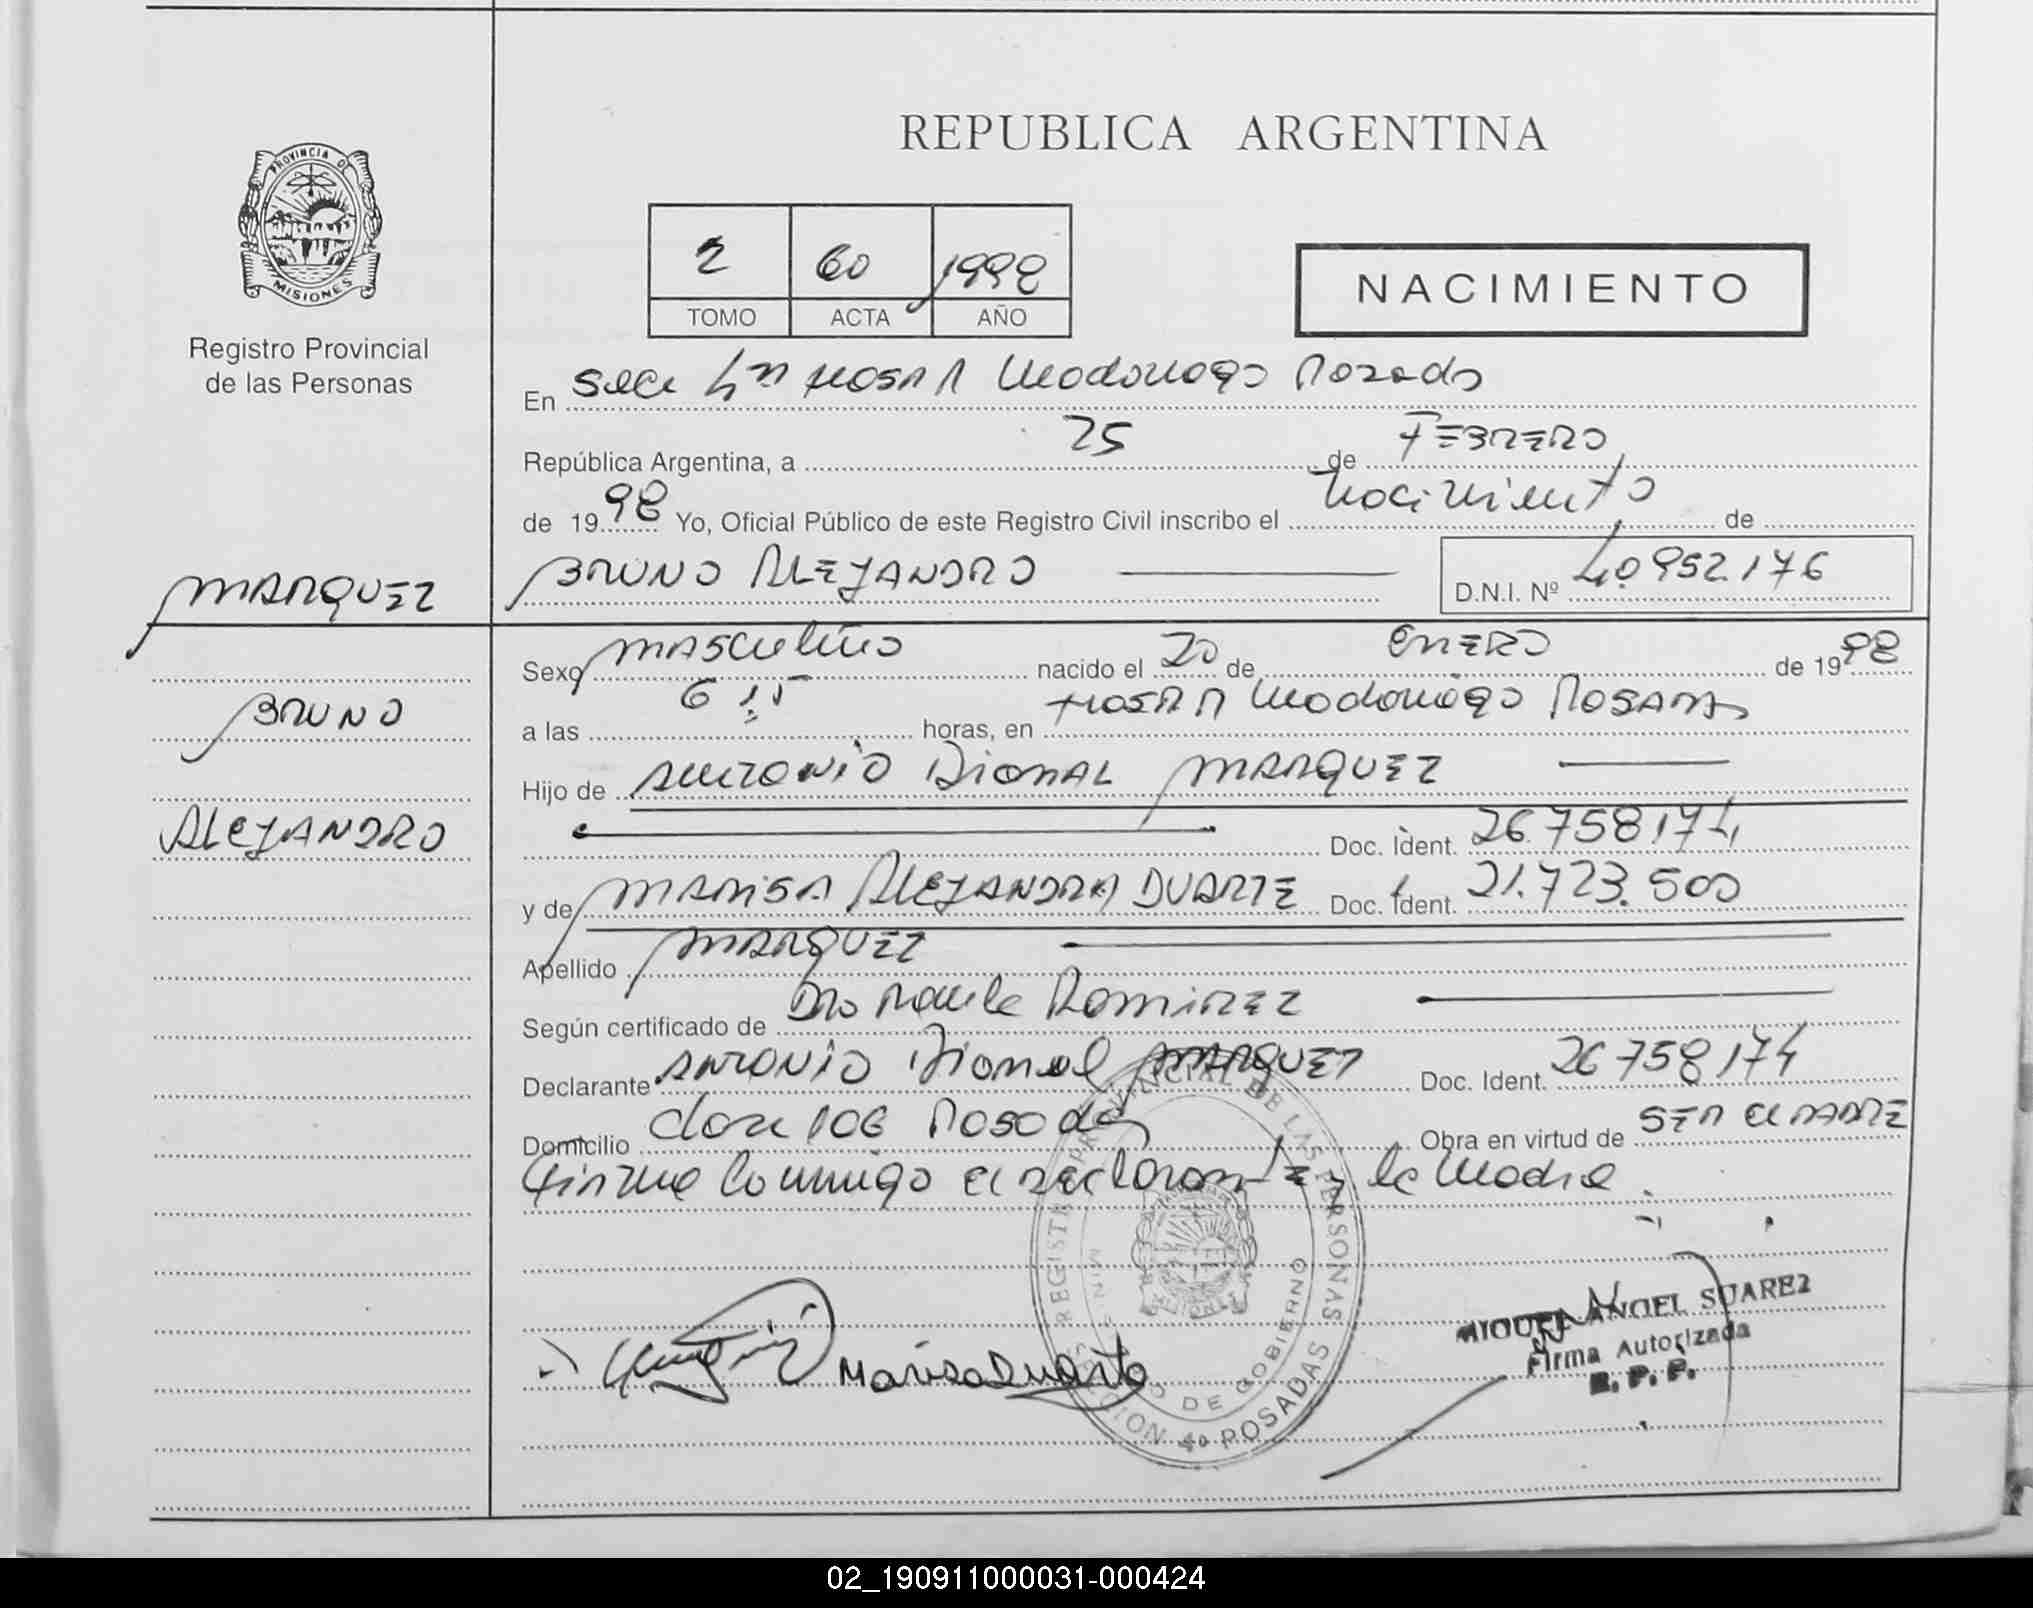 REPUBLICA ARGENTINA
PROVINCIA DE
MISIONES
Registro Provincial
de las Personas
2 60 1998
TOMO ACTA AÑO
NACIMIENTO
En Secc 4ta Posadas
República Argentina, a 25 de FEBRERO
de 1998 Yo, Oficial Público de este Registro Civil inscribo el Nacimiento de
MARQUEZ
BRUNO ALEJANDRO
D.N.I. Nº 40.952.176
BRUNO
ALEJANDRO
Sexo MASCULINO nacido el 20 de ENERO de 1998
a las 6:15 horas, en POSADAS
Hijo de ANTONIO MARQUEZ
Doc. Ident. 26.758.174
y de MARISA ALEJANDRA DUARTE Doc. Ident. 21.723.500
Apellido MARQUEZ
Según certificado de RAMIREZ
Declarante ANTONIO MARQUEZ Doc. Ident. 26758174
Domicilio 106 Posadas Obra en virtud de SER EL PADRE
Firma conmigo el declarante y la Madre.
Marisa Duarte
REGISTRO PROVINCIAL DE LAS PERSONAS
DE GOBIERNO
SECCION 4a POSADAS
MIGUEL ANGEL SUAREZ
Firma Autorizada
R. P. P.
02_190911000031-000424